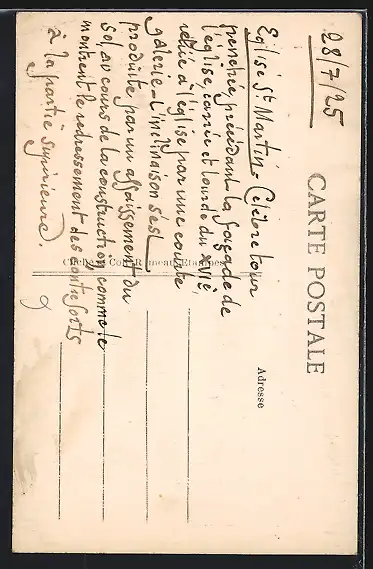 28/7/25
CARTE POSTALE
Eglise St Martin. Célèbre tour
penchée précédant la façade de
l'église, carrée et lourde du XVIè,
reliée à l'église par une courte
galerie - L'inclinaison s'est
produite par un affaissement du
sol, au cours de la construction comme le
montrent le redressement des contreforts
à la partie supérieure.
Cliché Coll. Rameau Etampes
Adresse